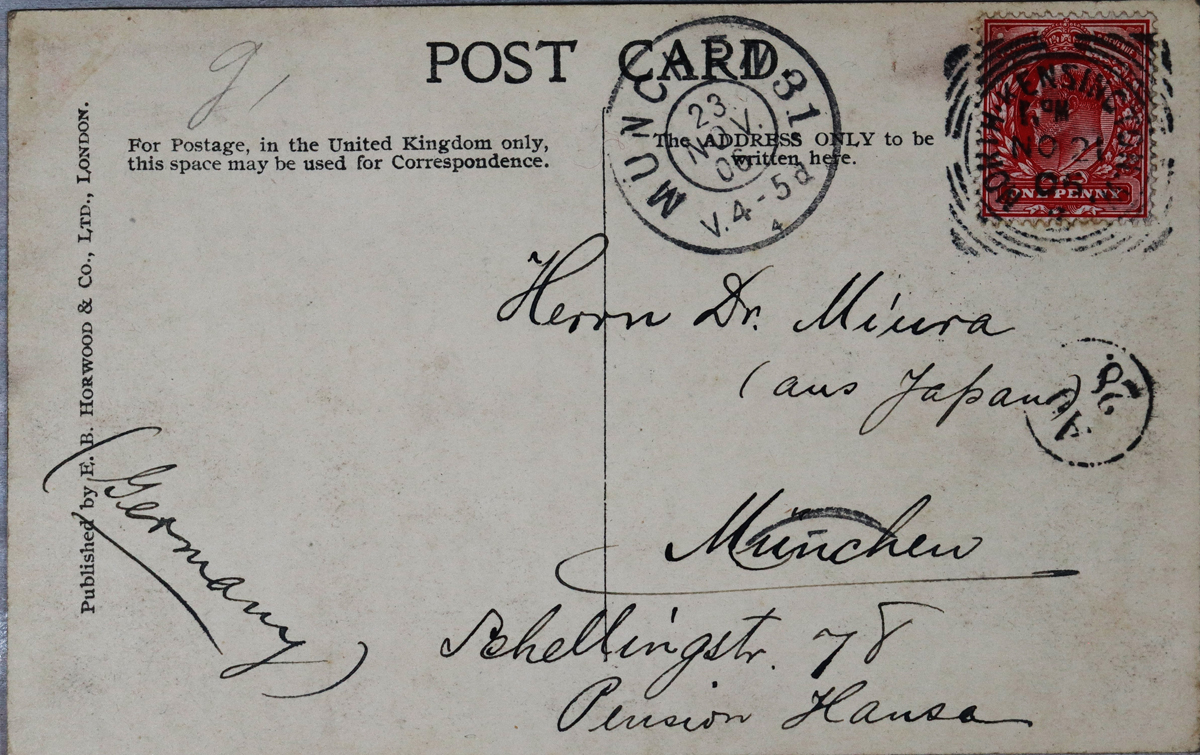 POST CARD.
For Postage, in the United Kingdom only,
this space may be used for Correspondence.
The ADDRESS ONLY to be
written here.
MÜNCHEN 31.
23.
NOV.
06
V.4-5
NORTH KENSINGTON
NO 21
06
ONE PENNY
Herrn Dr. Miura
(aus Japan)
München
Schellingstr. 78
Pension Hansa
(Germany)
Published by E. B. HORWOOD & Co., LTD., LONDON.